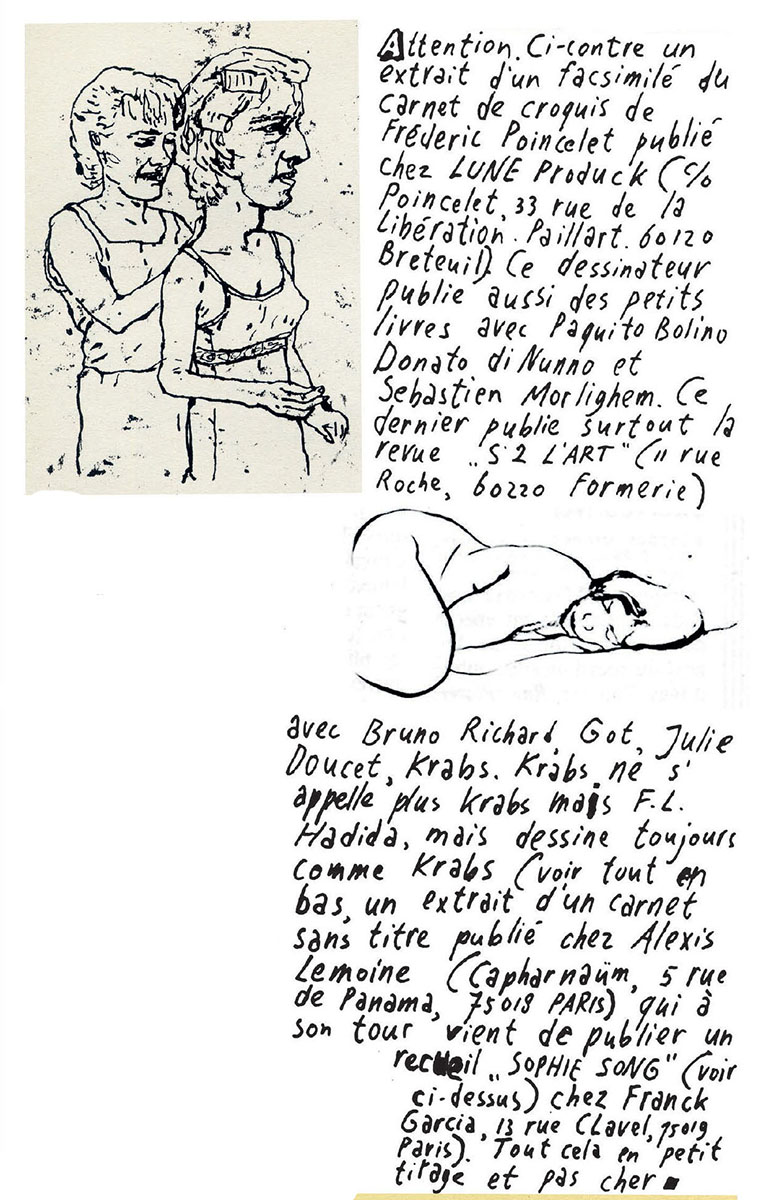 Attention. Ci-contre un
extrait d'un facsimilé du
carnet de croquis de
Fréderic Poincelet publié
chez LUNE Produck (c/o
Poincelet, 33 rue de la
Libération. Paillart. 60120
Breteuil). Ce dessinateur
publie aussi des petits
livres avec Paquito Bolino
Donato di Nunno et
Sebastien Morlighem. Ce
dernier publie surtout la
revue „S2 L'ART" (11 rue
Roche, 60220 Formerie)
avec Bruno Richard, Got, Julie
Doucet, Krabs. Krabs ne s'
appelle plus Krabs mais F.L.
Hadida, mais dessine toujours
comme Krabs (voir tout en
bas, un extrait d'un carnet
sans titre publié chez Alexis
Lemoine (Capharnaüm, 5 rue
de Panama, 75018 PARIS) qui à
son tour vient de publier un
recueil „SOPHIE SONG" (voir
ci-dessus) chez Franck
Garcia, 13 rue Clavel, 75019
Paris). Tout cela en petit
tirage et pas cher.